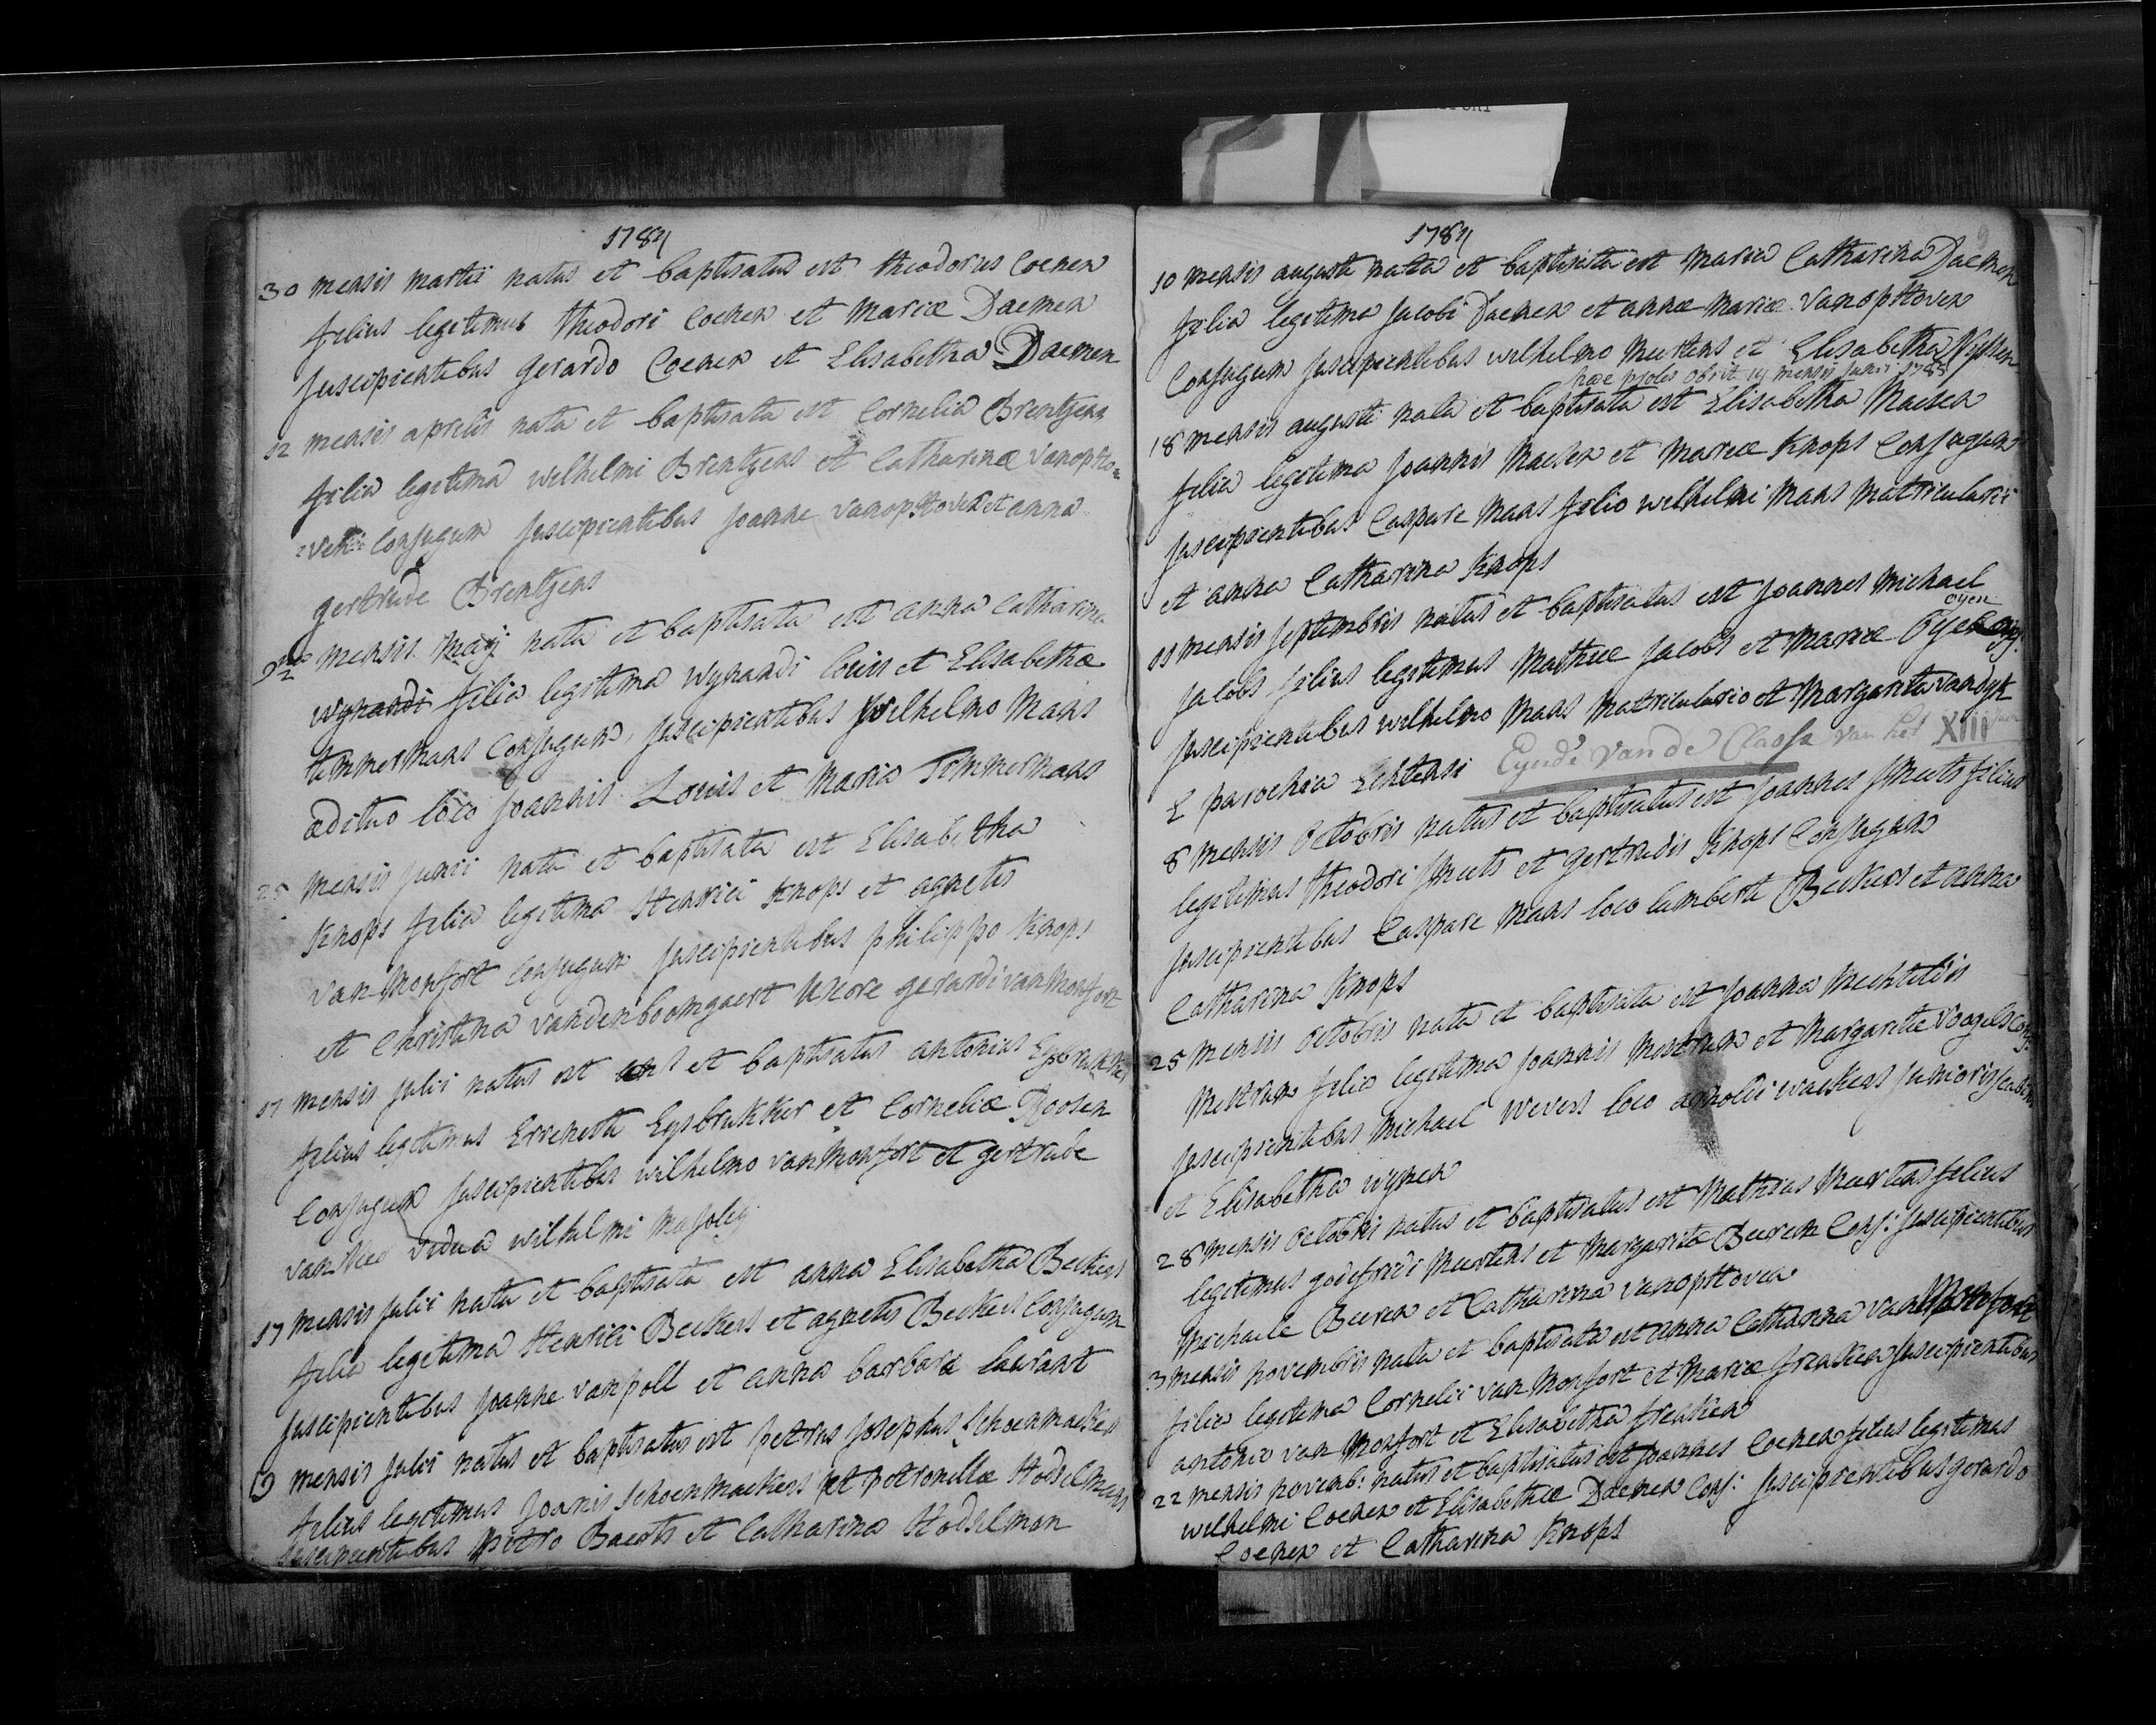 1784
30 mensis martii natus et baptisatus est theodorus Coenen
filius legitimus theodori Coenen et Mariæ Daemen
suscipientibus gerardo Coenen et Elisabetha Daemen
12 mensis aprilis nata et baptisata est Cornelia Brentjens
filia legitima wilhelmi Brentjens et Catharinæ Vanopho=
=ven Conjugum suscipientibus joanne vanophoven et anna
gertrude Brentjens
mensis maij nata et baptisata est anna catharina
wynandi filia legitima wynandi Louis et Elisabethæ
timmermans Conjugum, suscipientibus wilhelmo Maas
ædituo loco joannis Louis et Maria Timmermans
25 mensis junii nata et baptisata est Elisabetha
Knops filia legitima Henrici Knops et agnetis
van Monfort Conjugum suscipientibus philippo Knops
et Christina vandenboomgaert uxore gerardi van Monfort
17 mensis julii natus est et baptisatus antonius
filius legitimus Eysbrukker et Corneliæ Roosen
Conjugum suscipientibus wilhelmo van Monfort et gertrude
van vidua wilhelmi
17 mensis julii nata et baptisata est anna Elisabetha Beckers
filia legitima Henrici Beckers et agnetis Beckers Conjugum
suscipientibus joanne van poll et anna barbara laurant
mensis julii natus et baptisatus est petrus josephus Schoenmaekers
filius legitimus joanis Schoenmaekers et petronillæ Hodselmans
suscipientibus petro Baerts et Catharina Hodselman
1784
9
10 mensis augusti nata et baptisata est Maria Catharina Daemen
filia legitima jacobi Daemen et annæ Mariæ Vanophoven
Conjugum suscipientibus wilhelmo Meertens et Elisabetha Nyssen
hæc proles obiit 14 mensis junii 1785
18 mensis augusti nata et baptisata est Elisabetha Maesen
filia legitima joannis Maesen et Mariæ Knops Conjugum
suscipientibus Caspare Maas filio wilhelmi Maas Matricularii
et anna Catharina Knops
mensis septembris natus et baptisatus est joannes michael
oyen
jacobs filius legitimus Mathiæ jacobs et Mariæ Conj:
suscipientibus wilhelmo Maas Matriculario et Margareta vandyk
E parochia Echtensi Eynde van de Classe van het XIII
8 mensis Octobris natus et baptisatus est joannes smeets filius
legitimus theodori smeets et gertrudis Knops Conjugum
suscipientibus Caspare Maas loco lamberti Beckers et anna
Catharina Knops
25 mensis Octobris nata et baptisata est joanna Mechtildis
Mestrum filia legitima joannis Mestrum et Margaretæ Voogels Conj:
suscipientibus Michael Wevers loco arnoldi waekens junioris
et Elisabetha wynen
28 mensis Octobris natus et baptisatus est Mathias Meertens filius
legitimus godefridi Meertens et Margarita Beeren Conj: suscipientibus
Michaele Beeren et Catharina vanophoven
3 mensis novembris nata et baptisata est anna Catharina van Monfort
filia legitima Cornelii van Monfort et Mariæ frenken suscipientibus
antonio van Monfort et Elisabetha frenken
22 mensis novemb: natus et baptisatus est joannes Coenen filius legitimus
wilhelmi Coenen et Elisabethæ Daemen Conj: suscipientibus gerardo
Coenen et Catharina Knops